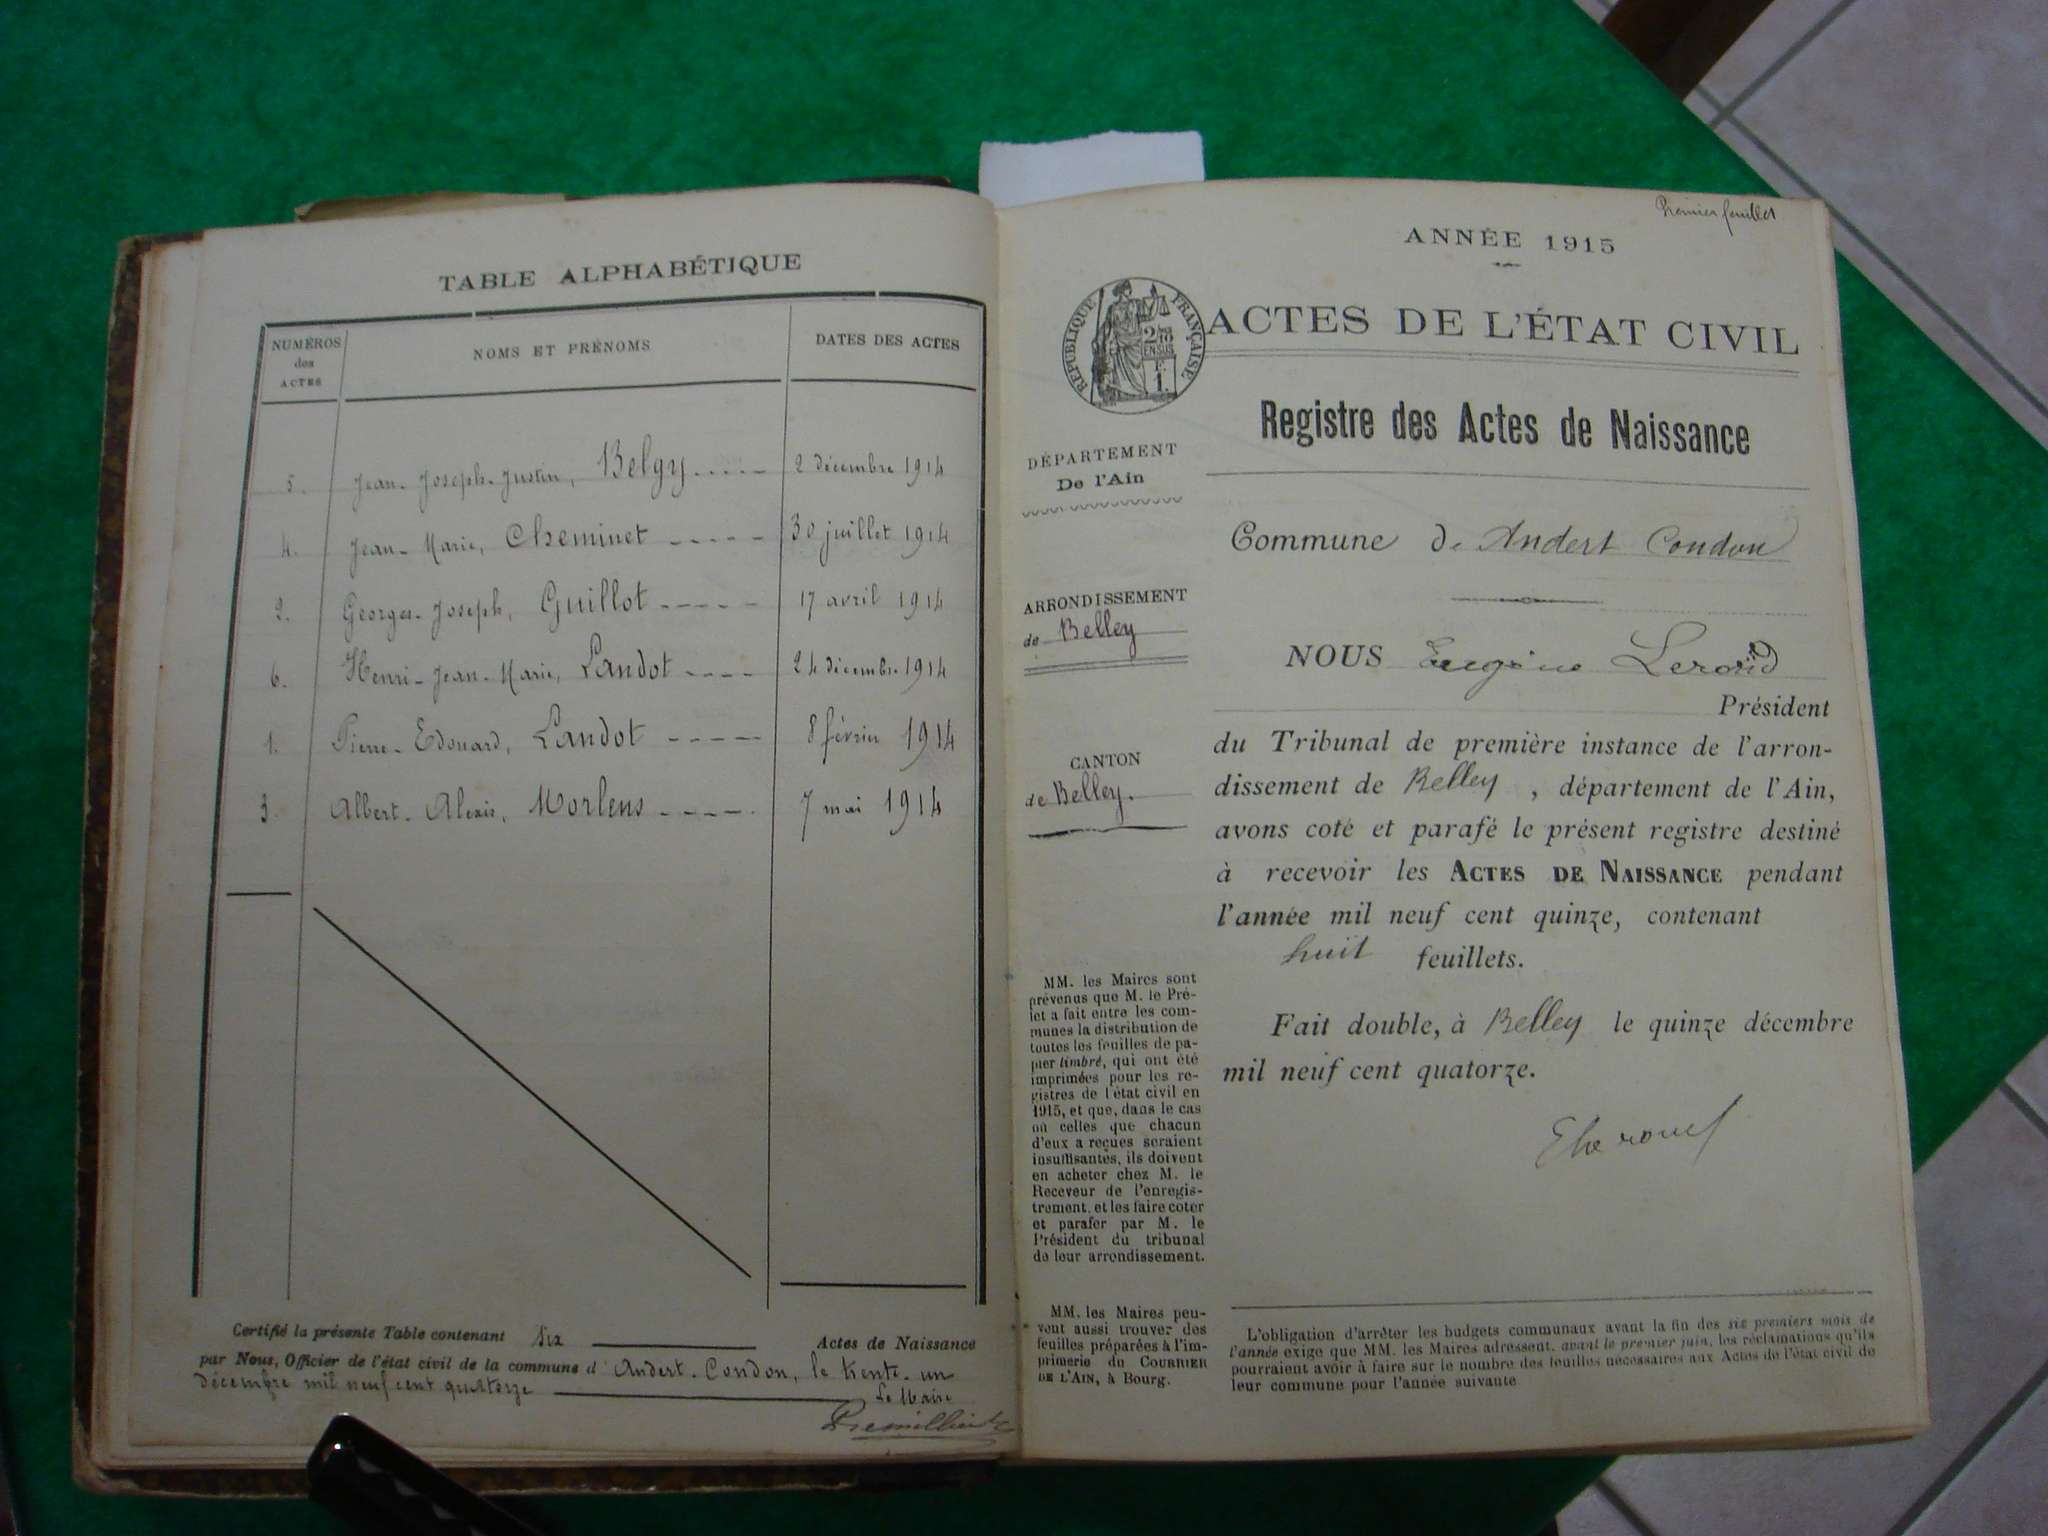 TABLE ALPHABÉTIQUE
NUMÉROS des ACTES
NOMS ET PRÉNOMS
DATES DES ACTES
5. Jean-Joseph-Justin, Belgy 2 décembre 1914
4. Jean-Marie, Cheminet 30 juillet 1914
2. Georges-Joseph, Guillot 17 avril 1914
6. Henri-Jean-Marie, Landot 24 décembre 1914
1. Pierre-Edouard, Landot 8 février 1914
3. Albert-Alexis, Morlens 7 mai 1914
Certifié la présente Table contenant Six Actes de Naissance
par Nous, Officier de l'état civil de la commune d'Andert-Condon, le trente-un
décembre mil neuf cent quatorze
Le Maire
Premier feuillet
ANNÉE 1915
RÉPUBLIQUE FRANÇAISE
2/10
EN SUS
1
ACTES DE L'ÉTAT CIVIL
Registre des Actes de Naissance
DÉPARTEMENT
De l'Ain
Commune d'Andert Condon
ARRONDISSEMENT
de Belley
CANTON
de Belley.
NOUS Eugène
Président
du Tribunal de première instance de l'arron-
dissement de Belley, département de l'Ain,
avons coté et parafé le présent registre destiné
à recevoir les ACTES DE NAISSANCE pendant
l'année mil neuf cent quinze, contenant
huit feuillets.
Fait double, à Belley le quinze décembre
mil neuf cent quatorze.
MM. les Maires sont
prévenus que M. le Pré-
fet a fait entre les com-
munes la distribution de
toutes les feuilles de pa-
pier timbré, qui ont été
imprimées pour les re-
gistres de l'état civil en
1915, et que, dans le cas
où celles que chacun
d'eux a reçues seraient
insuffisantes, ils doivent
en acheter chez M. le
Receveur de l'enregis-
trement, et les faire coter
et parafer par M. le
Président du tribunal
de leur arrondissement.
MM. les Maires peu-
vent aussi trouver des
feuilles préparées à l'im-
primerie du COURRIER
DE L'AIN, à Bourg.
L'obligation d'arrêter les budgets communaux avant la fin des six premiers mois de
l'année exige que MM. les Maires adressent, avant le premier juin, les réclamations qu'ils
pourraient avoir à faire sur le nombre des feuilles nécessaires aux Actes de l'état civil de
leur commune pour l'année suivante